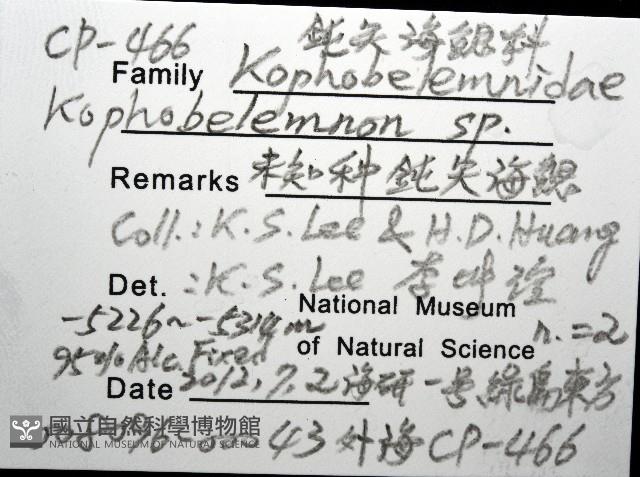 CP-466 鈍矢海鰓科
Family Kophobelemnidae
Kophobelemnon sp.
Remarks 未知种鈍矢海鰓
Coll.: K.S. Lee & H.D. Huang
Det. : K.S. Lee 李坤瑄
-5226~-5314m National Museum n.=2
95% Alc. Fixed of Natural Science
Date 2012,7.2 海研一号綠島東方
國立自然科學博物館
NATIONAL MUSEUM OF NATURAL SCIENCE
43 外海 CP-466